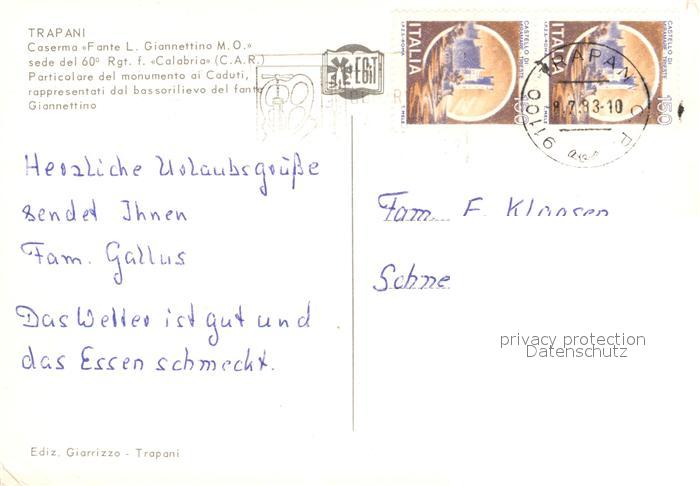 TRAPANI
Caserma «Fante L. Giannettino M.O.»
sede del 60º Rgt. f. «Calabria» (C.A.R.)
Particolare del monumento ai Caduti,
rappresentati dal bassorilievo del fante
Giannettino
EGIT
ITALIA
CASTELLO DI
MIRAMARE TRIESTE
150
ITALIA
CASTELLO DI
MIRAMARE TRIESTE
150
91100 TRAPANI C.P.
8.7.83-10
Herzliche Urlaubsgrüße
sendet Ihnen
Fam. Gallus
Das Wetter ist gut und
das Essen schmeckt.
Fam. F. Klaasen
Schne
privacy protection
Datenschutz
Ediz. Giarrizzo - Trapani